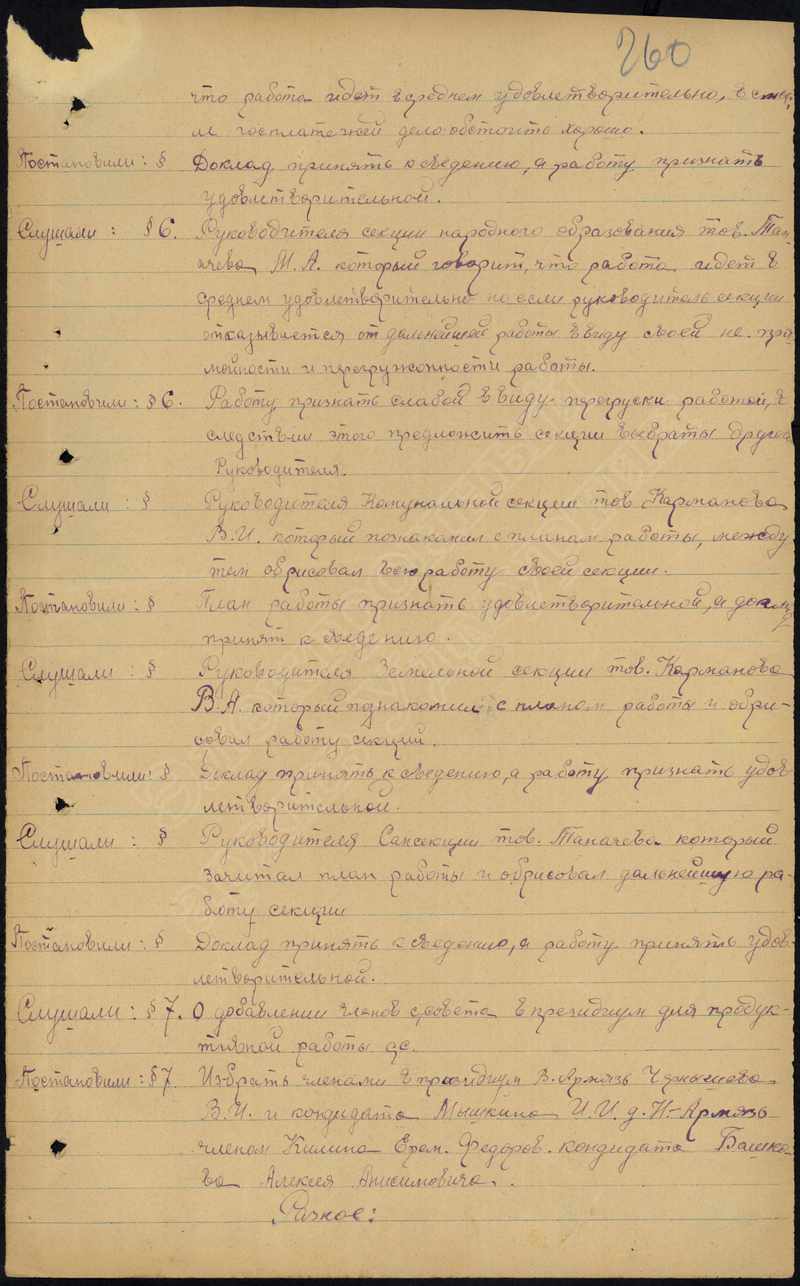 260
что работа идет в среднем удовлетворительно, в
м госплатежей дело обстоитъ хорошо.
Постановили: § Доклад принять к сведению, а работу признать
удовлетворительной.
Слушали: § 6. Руководителя секции народного образования тов. Тап-
ачева М.А. который говорит, что работа идет в
среднем удовлетворительно но если руководитель секции
отказывается от дальнейшей работы ввиду своей не
и перегружонности работы.
Постановили: § 6. Работу признать слабой ввиду перегруски работой, в
следствии этого предложить секции выбраты другого
Руководителя.
Слушали: § Руководителя Комунальной секции тов. Карманова
В.И. который познакомил с планам работы, между
тем обрисовал всю работу своей секции.
Постановили: § План работы признать удовлетворительной, а доклад
принят к сведению.
Слушали: § Руководителя Земельной секции тов. Карманова
В.А. который познакомил с планом работы и обри-
совал работу секций.
Постановили: § Доклад принять к сведению, а работу признать удов
летворительной.
Слушали: § Руководителя Сансекции тов. Тапачева который
зачитал план работы и обрисовал дальнейшую ра-
боту секции
Постановили: § Доклад принять к сведению, а работу принять удов-
летворительной.
Слушали: § 7. О добавлении членов совета в президиум для продук-
тивной работы
Постановили: § 7. Избрать членами в президиум В-Армязь Чернышева
В.И. и кондидата Мышкина И.И. д. Н-Армязь
членом Килина Ерем. Федоров. кондидата Башко-
ва Алексея Анисимовича.
Разное: